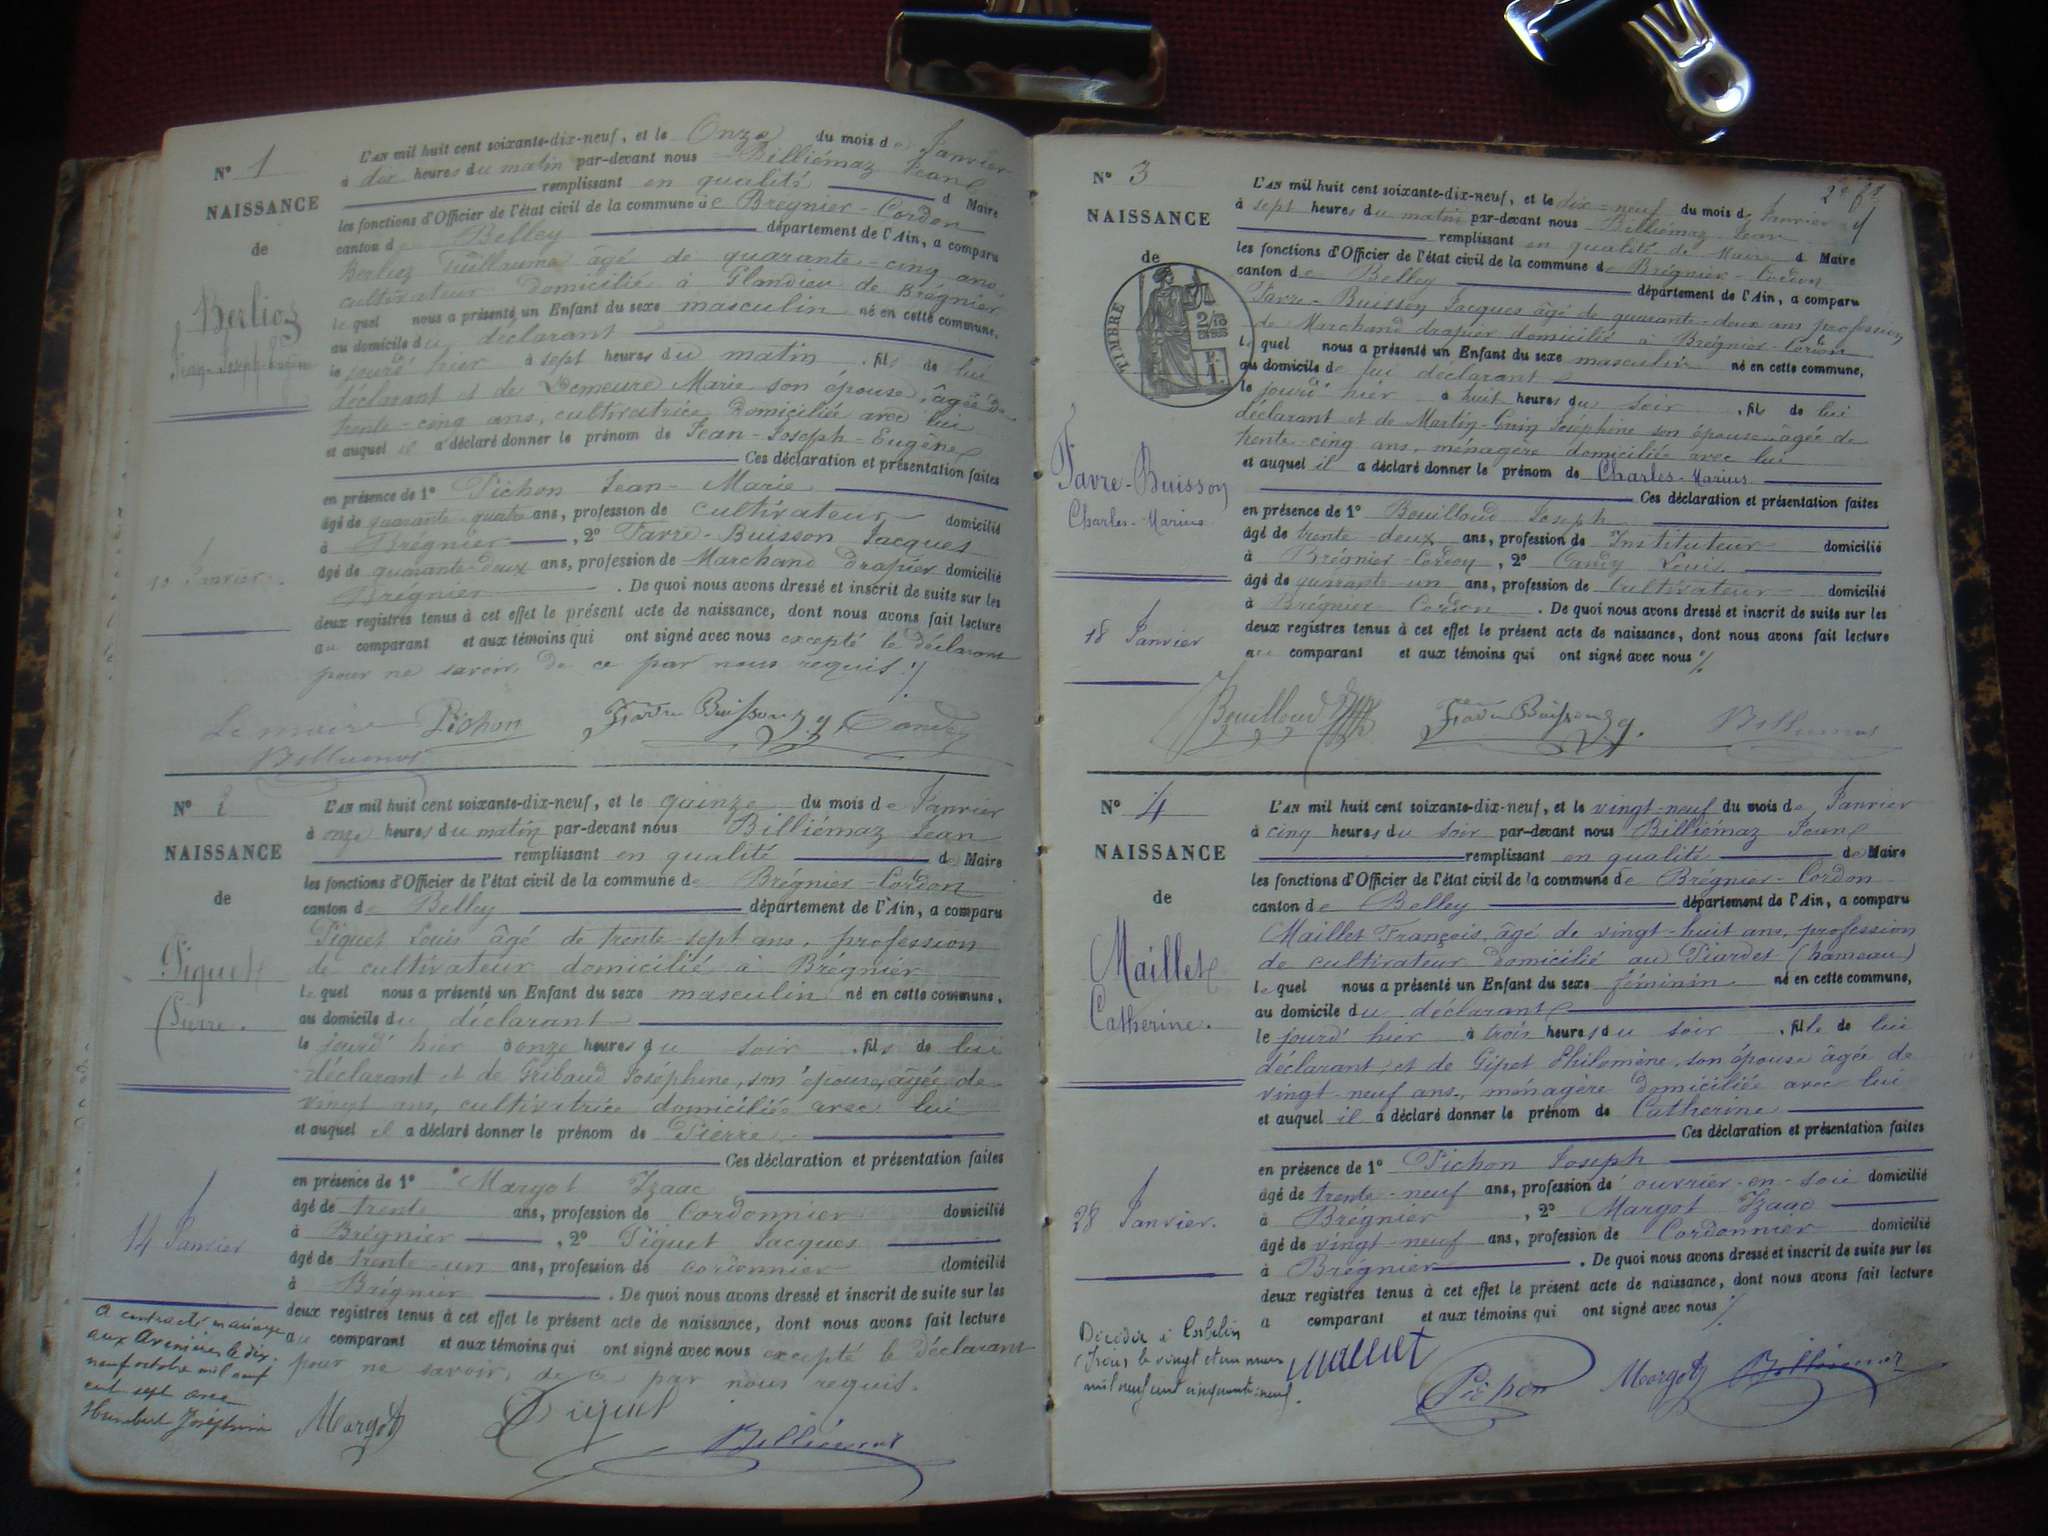 N° 1
NAISSANCE
de
Berlioz
Jean-Joseph-Eugène
10 Janvier
L'AN mil huit cent soixante-dix-neuf, et le Onze du mois de Janvier
à dix heures du matin par-devant nous Billiémaz Jean
remplissant en qualité d Maire
les fonctions d'Officier de l'état civil de la commune de Brégnier-Cordon
canton de Belley département de l'Ain, a comparu
Berlioz Guillaume âgé de quarante-cinq ans,
cultivateur domicilié à Glandieu de Brégnier
lequel nous a présenté un Enfant du sexe masculin né en cette commune,
au domicile du déclarant
le jourd'hier à sept heures du matin, fils de lui
déclarant et de Demeure Marie son épouse, âgée de
trente-cinq ans, cultivatrice domiciliée avec lui
et auquel il a déclaré donner le prénom de Jean-Joseph-Eugène
Ces déclaration et présentation faites
en présence de 1° Pichon Jean-Marie
âgé de quarante-quatre ans, profession de cultivateur domicilié
à Brégnier, 2° Favre-Buisson Jacques
âgé de quarante-deux ans, profession de Marchand drapier domicilié
Brégnier. De quoi nous avons dressé et inscrit de suite sur les
deux registres tenus à cet effet le présent acte de naissance, dont nous avons fait lecture
au comparant et aux témoins qui ont signé avec nous excepté le déclarant
pour ne savoir, de ce par nous requis ./.
Le maire Pichon Favre Buisson J
Billiemaz
N° 2
NAISSANCE
de
Piquet
Pierre.
14 Janvier
L'AN mil huit cent soixante-dix-neuf, et le quinze du mois de Janvier
à onze heures du matin par-devant nous Billiémaz Jean
remplissant en qualité de Maire
les fonctions d'Officier de l'état civil de la commune de Brégnier-Cordon
canton de Belley département de l'Ain, a comparu
Piquet Louis âgé de trente-sept ans, profession
de cultivateur domicilié à Brégnier
lequel nous a présenté un Enfant du sexe masculin né en cette commune,
au domicile du déclarant
le jourd'hier à onze heures du soir, fils de lui
déclarant et de Gribaud Joséphine, son épouse, âgée de
vingt ans, cultivatrice domiciliée avec lui
et auquel il a déclaré donner le prénom de Pierre.
Ces déclaration et présentation faites
en présence de 1° Margot Izaac
âgé de trente ans, profession de Cordonnier domicilié
à Brégnier, 2° Piquet Jacques
âgé de trente-un ans, profession de cordonnier domicilié
à Brégnier. De quoi nous avons dressé et inscrit de suite sur les
deux registres tenus à cet effet le présent acte de naissance, dont nous avons fait lecture
au comparant et aux témoins qui ont signé avec nous excepté le déclarant
pour ne savoir, de ce par nous requis.
A contracté mariage
aux Avenières le dix-
neuf octobre mil neuf
cent sept avec
Humbert Joséphine
Margot Piquet Billiémaz
2e fs
N° 3
NAISSANCE
de
TIMBRE
Favre-Buisson
Charles-Marius
18 Janvier
L'AN mil huit cent soixante-dix-neuf, et le dix-neuf du mois de Janvier
à sept heures du matin par-devant nous Billiémaz Jean
remplissant en qualité de Maire d Maire
les fonctions d'Officier de l'état civil de la commune de Brégnier-Cordon
canton de Belley département de l'Ain, a comparu
Favre-Buisson Jacques âgé de quarante-deux ans profession
de Marchand drapier domicilié à Brégnier-Cordon
lequel nous a présenté un Enfant du sexe masculin né en cette commune,
au domicile de lui déclarant
le jourd'hier à huit heures du soir, fils de lui
déclarant et de Martin-Cuin Joséphine son épouse âgée de
trente-cinq ans, ménagère domiciliée avec lui
et auquel il a déclaré donner le prénom de Charles-Marius
Ces déclaration et présentation faites
en présence de 1° Bouilloud Joseph
âgé de trente-deux ans, profession de Instituteur domicilié
à Brégnier-Cordon, 2° Candy Louis
âgé de quarante-un ans, profession de Cultivateur domicilié
à Brégnier Cordon. De quoi nous avons dressé et inscrit de suite sur les
deux registres tenus à cet effet le présent acte de naissance, dont nous avons fait lecture
au comparant et aux témoins qui ont signé avec nous ./.
Bouilloud Favre Buisson J Billiemaz
N° 4
NAISSANCE
de
Maillet
Catherine.
28 Janvier.
L'AN mil huit cent soixante-dix-neuf, et le vingt-neuf du mois de Janvier
à cinq heures du soir par-devant nous Billiémaz Jean
remplissant en qualité de Maire
les fonctions d'Officier de l'état civil de la commune de Brégnier-Cordon
canton de Belley département de l'Ain, a comparu
Maillet François, âgé de vingt-huit ans, profession
de cultivateur domicilié au Piardet (hameau)
lequel nous a présenté un Enfant du sexe féminin né en cette commune,
au domicile du déclarant
le jourd'hier à trois heures du soir, fille de lui
déclarant, et de Gipet Philomène, son épouse âgée de
vingt-neuf ans, ménagère domiciliée avec lui
et auquel il a déclaré donner le prénom de Catherine
Ces déclaration et présentation faites
en présence de 1° Pichon Joseph
âgé de trente-neuf ans, profession de ouvrier-en-soie domicilié
à Brégnier, 2° Margot Izaac
âgé de vingt-neuf ans, profession de Cordonnier domicilié
à Brégnier. De quoi nous avons dressé et inscrit de suite sur les
deux registres tenus à cet effet le présent acte de naissance, dont nous avons fait lecture
a comparant et aux témoins qui ont signé avec nous ./.
Décédée à Corbelin
(Isère) le vingt et un mars
mil neuf cent cinquante-neuf.
Maillet Pichon Margot Billiémaz